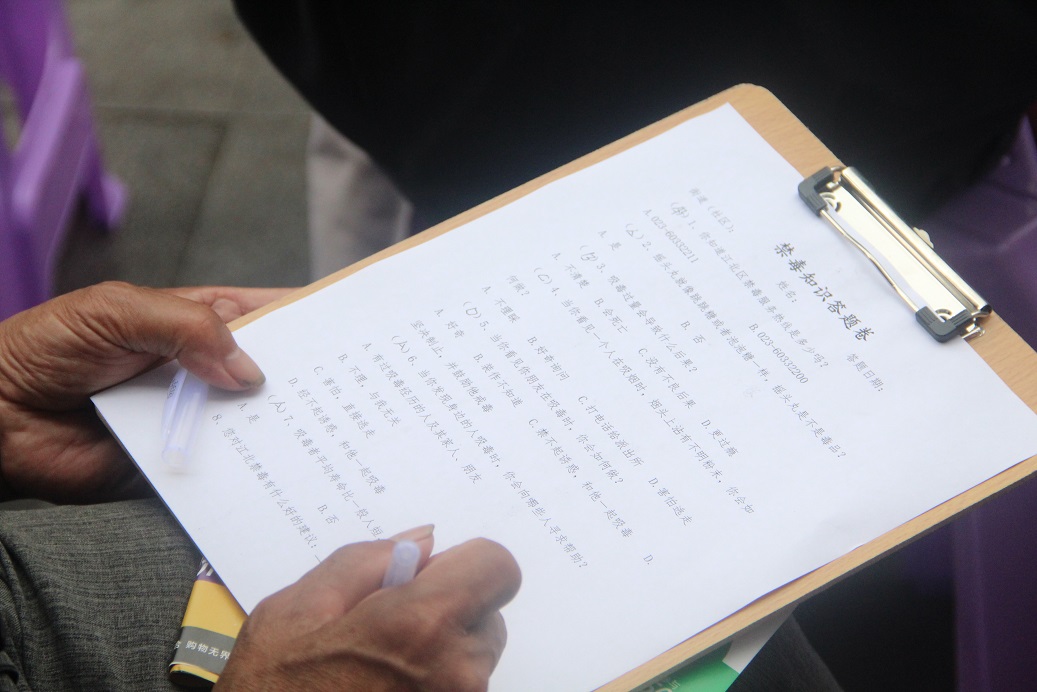 禁毒知识答题卷
街道(社区): 姓名: 答题日期:
( )1、你知道江北区禁毒服务热线是多少吗?
A.023-60332211 B.023-60332200
(A)2、摇头丸就像跳跳糖或者泡泡糖一样,摇头丸是不是毒品?
A、是 B、否
(B)3、吸毒过量会导致什么后果?
A、不清楚 B、会死亡 C、没有不良后果 D、更过瘾
(C)4、当你看见一个人在吸烟时,烟头上沾有不明粉末,你会如
何做?
A、不理睬 B、好奇询问 C、打电话给派出所 D、害怕逃走
(D)5、当你看见你朋友在吸毒时,你会如何做?
A、好奇 B、装作不知道 C、禁不起诱惑,和他一起吸毒 D、
坚决制止,并鼓励他戒毒
(A)6、当你发现身边的人吸毒时,你会向哪些人寻求帮助?
A、有过吸毒经历的人及其家人、朋友
B、不理,与我无关
C、害怕,直接逃走
D、经不起诱惑,和他一起吸毒
(A)7、吸毒者平均寿命比一般人短
A、是 B、否
8、您对江北禁毒有什么好的建议:
购物无界